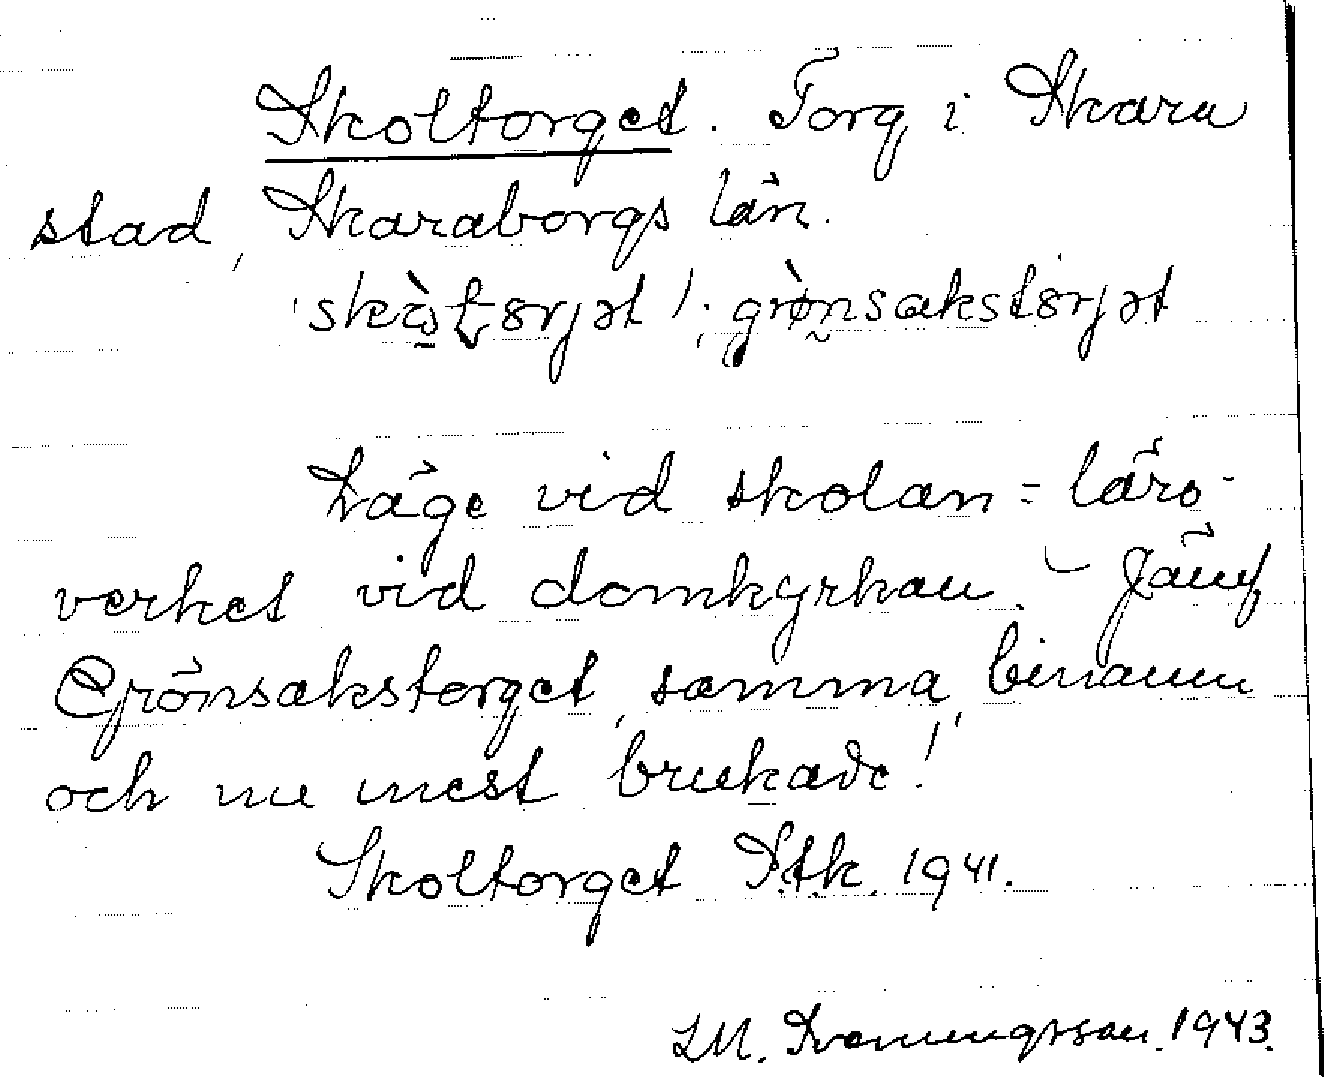 Skoltorget. Torg i Skara
stad, Skaraborgs län.
grønsakstorjət
Läge vid skolan = läro-
verket vid domkyrkan. – Jämf
Grönsakstorget, samma, binamn
och nu mest brukade!
Skoltorget Stk. 1941.
LM. Svenungsson. 1943.